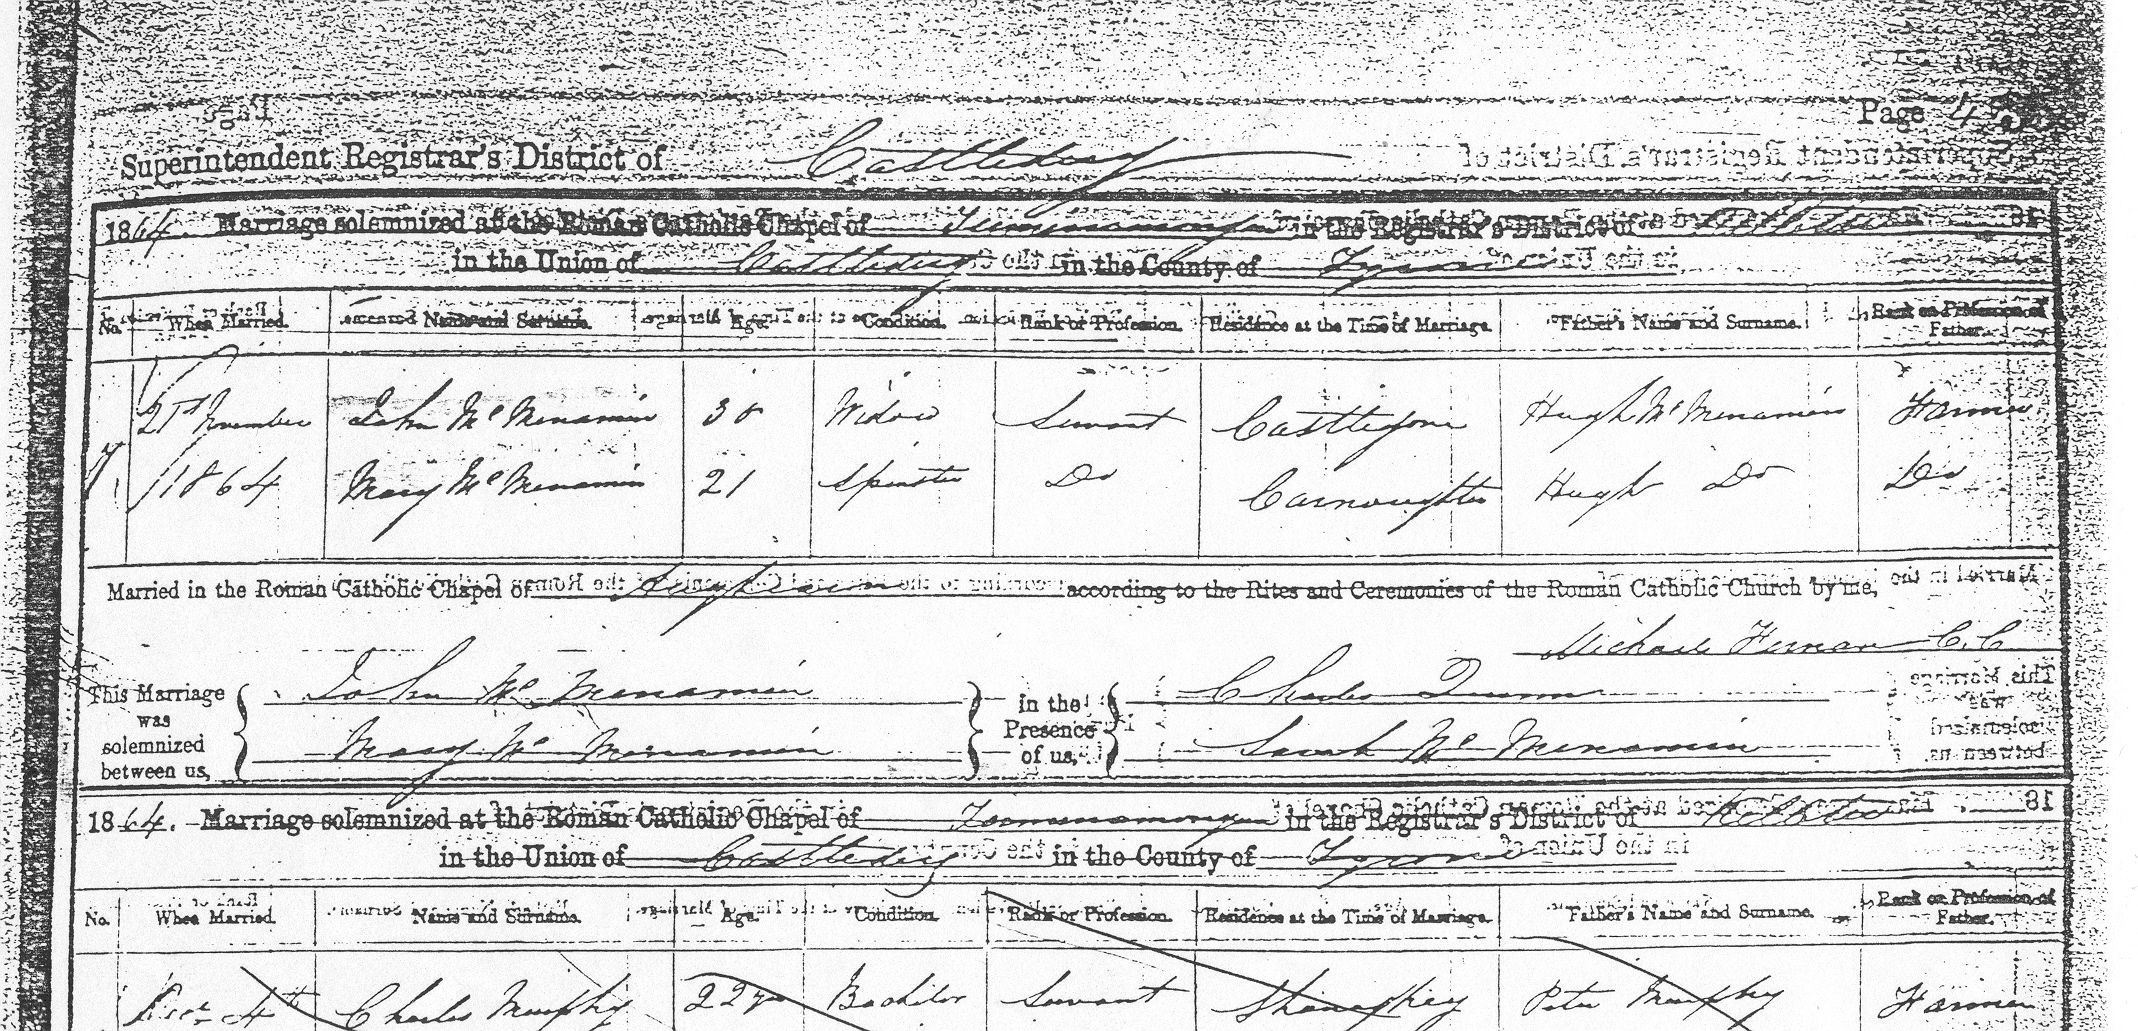 Page
Superintendent Registrar's District of Castlederg
1864. Marriage solemnized at the Roman Catholic Chapel of in the Registrar's District of
in the Union of Castlederg in the County of Tyrone
No. When Married. Name and Surname. Age. Condition. Rank or Profession. Residence at the Time of Marriage. Father's Name and Surname. Rank or Profession of Father.
21st November John McMenamin Widow Servant Castlegore Hugh McMenamin Farmer
7. 1864 Mary McMenamin 21 Spinster Do Hugh Do Do
Married in the Roman Catholic Chapel of according to the Rites and Ceremonies of the Roman Catholic Church by me,
Michael C.C
This Marriage was solemnized between us,
John McMenamin
Mary McMenamin
in the Presence of us,
Charles Dunn
Sarah McMenamin
1864. Marriage solemnized at the Roman Catholic Chapel of in the Registrar's District of
in the Union of Castlederg in the County of Tyrone
No. When Married. Name and Surname. Age. Condition. Rank or Profession. Residence at the Time of Marriage. Father's Name and Surname. Rank or Profession of Father.
Decr 4th Charles Murphy Bachelor Servant Peter Murphy Farmer